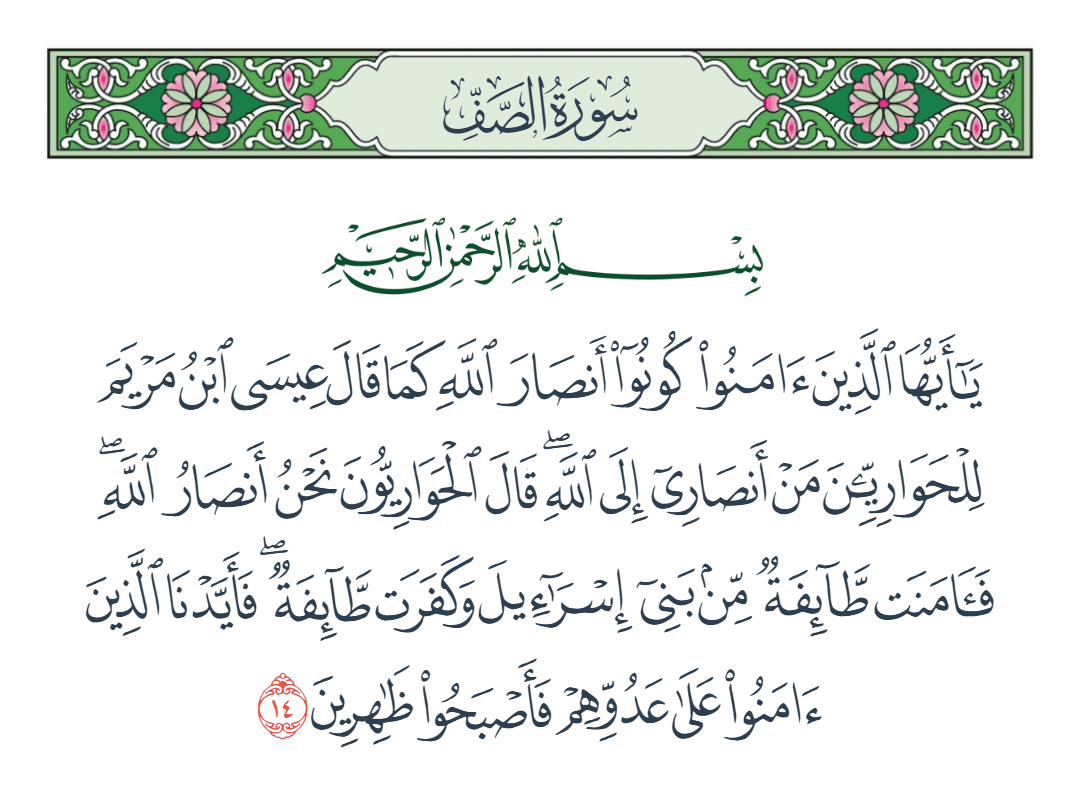 سُورَةُ الصَّفِّ
بِسْمِ ٱللَّهِ ٱلرَّحْمَٰنِ ٱلرَّحِيمِ
يَٰٓأَيُّهَا ٱلَّذِينَ ءَامَنُوا۟ كُونُوٓا۟ أَنصَارَ ٱللَّهِ كَمَا قَالَ عِيسَى ٱبْنُ مَرْيَمَ
لِلْحَوَارِيِّۦنَ مَنْ أَنصَارِىٓ إِلَى ٱللَّهِ ۖ قَالَ ٱلْحَوَارِيُّونَ نَحْنُ أَنصَارُ ٱللَّهِ ۖ
فَـَٔامَنَت طَّآئِفَةٌ مِّنۢ بَنِىٓ إِسْرَٰٓءِيلَ وَكَفَرَت طَّآئِفَةٌ ۖ فَأَيَّدْنَا ٱلَّذِينَ
ءَامَنُوا۟ عَلَىٰ عَدُوِّهِمْ فَأَصْبَحُوا۟ ظَٰهِرِينَ ١٤